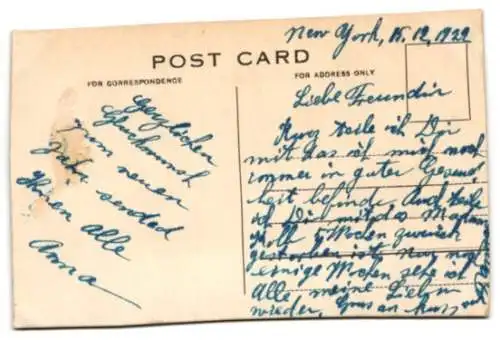 New York, 15.12.1922
POST CARD
FOR CORRESPONDENCE
FOR ADDRESS ONLY
Herzlichen
Glückwunsch
zum neuen
Jahr sended
Ihnen Alle
Anna
Liebe Freundin
Kurz teile ich Dir
mit das ich mich noch
immer in guter Gesund
heit befinde. Auch teile
ich Dir mit das Madam
5 Wochen zurück
gestorben ist. Nur noch
einige Wochen sehe ich
Alle meine Lieben
wieder, Grus an